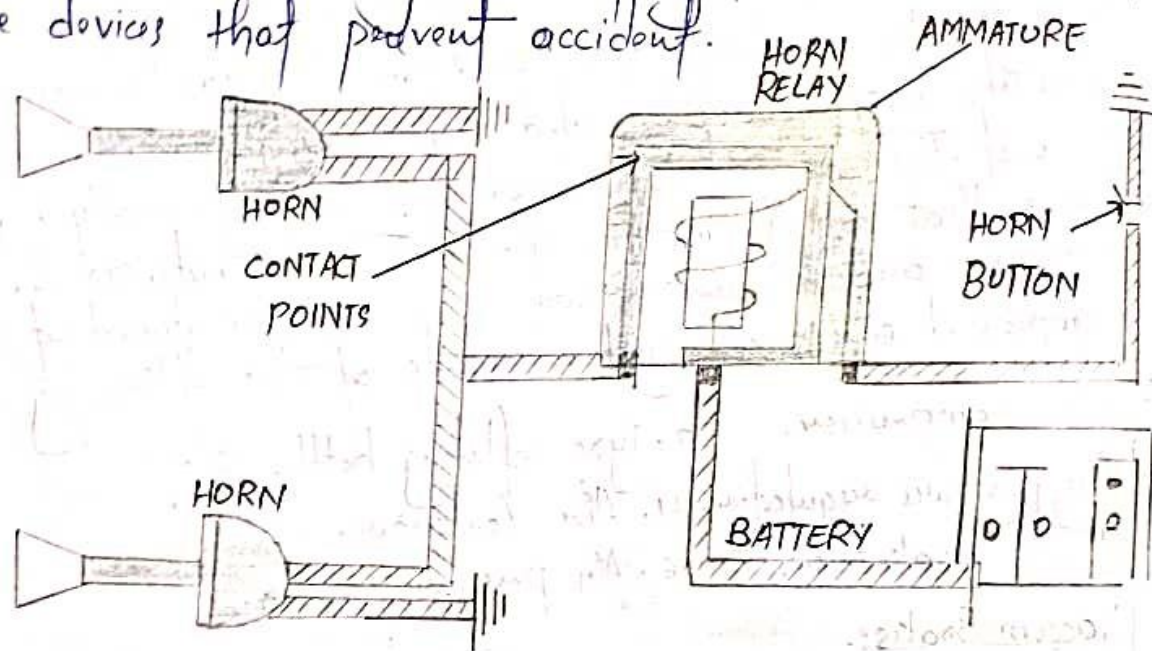 e devices that pedvent accident.
HORN
RELAY
AMMATURE
HORN
CONTACT
POINTS
HORN
BUTTON
HORN
BATTERY